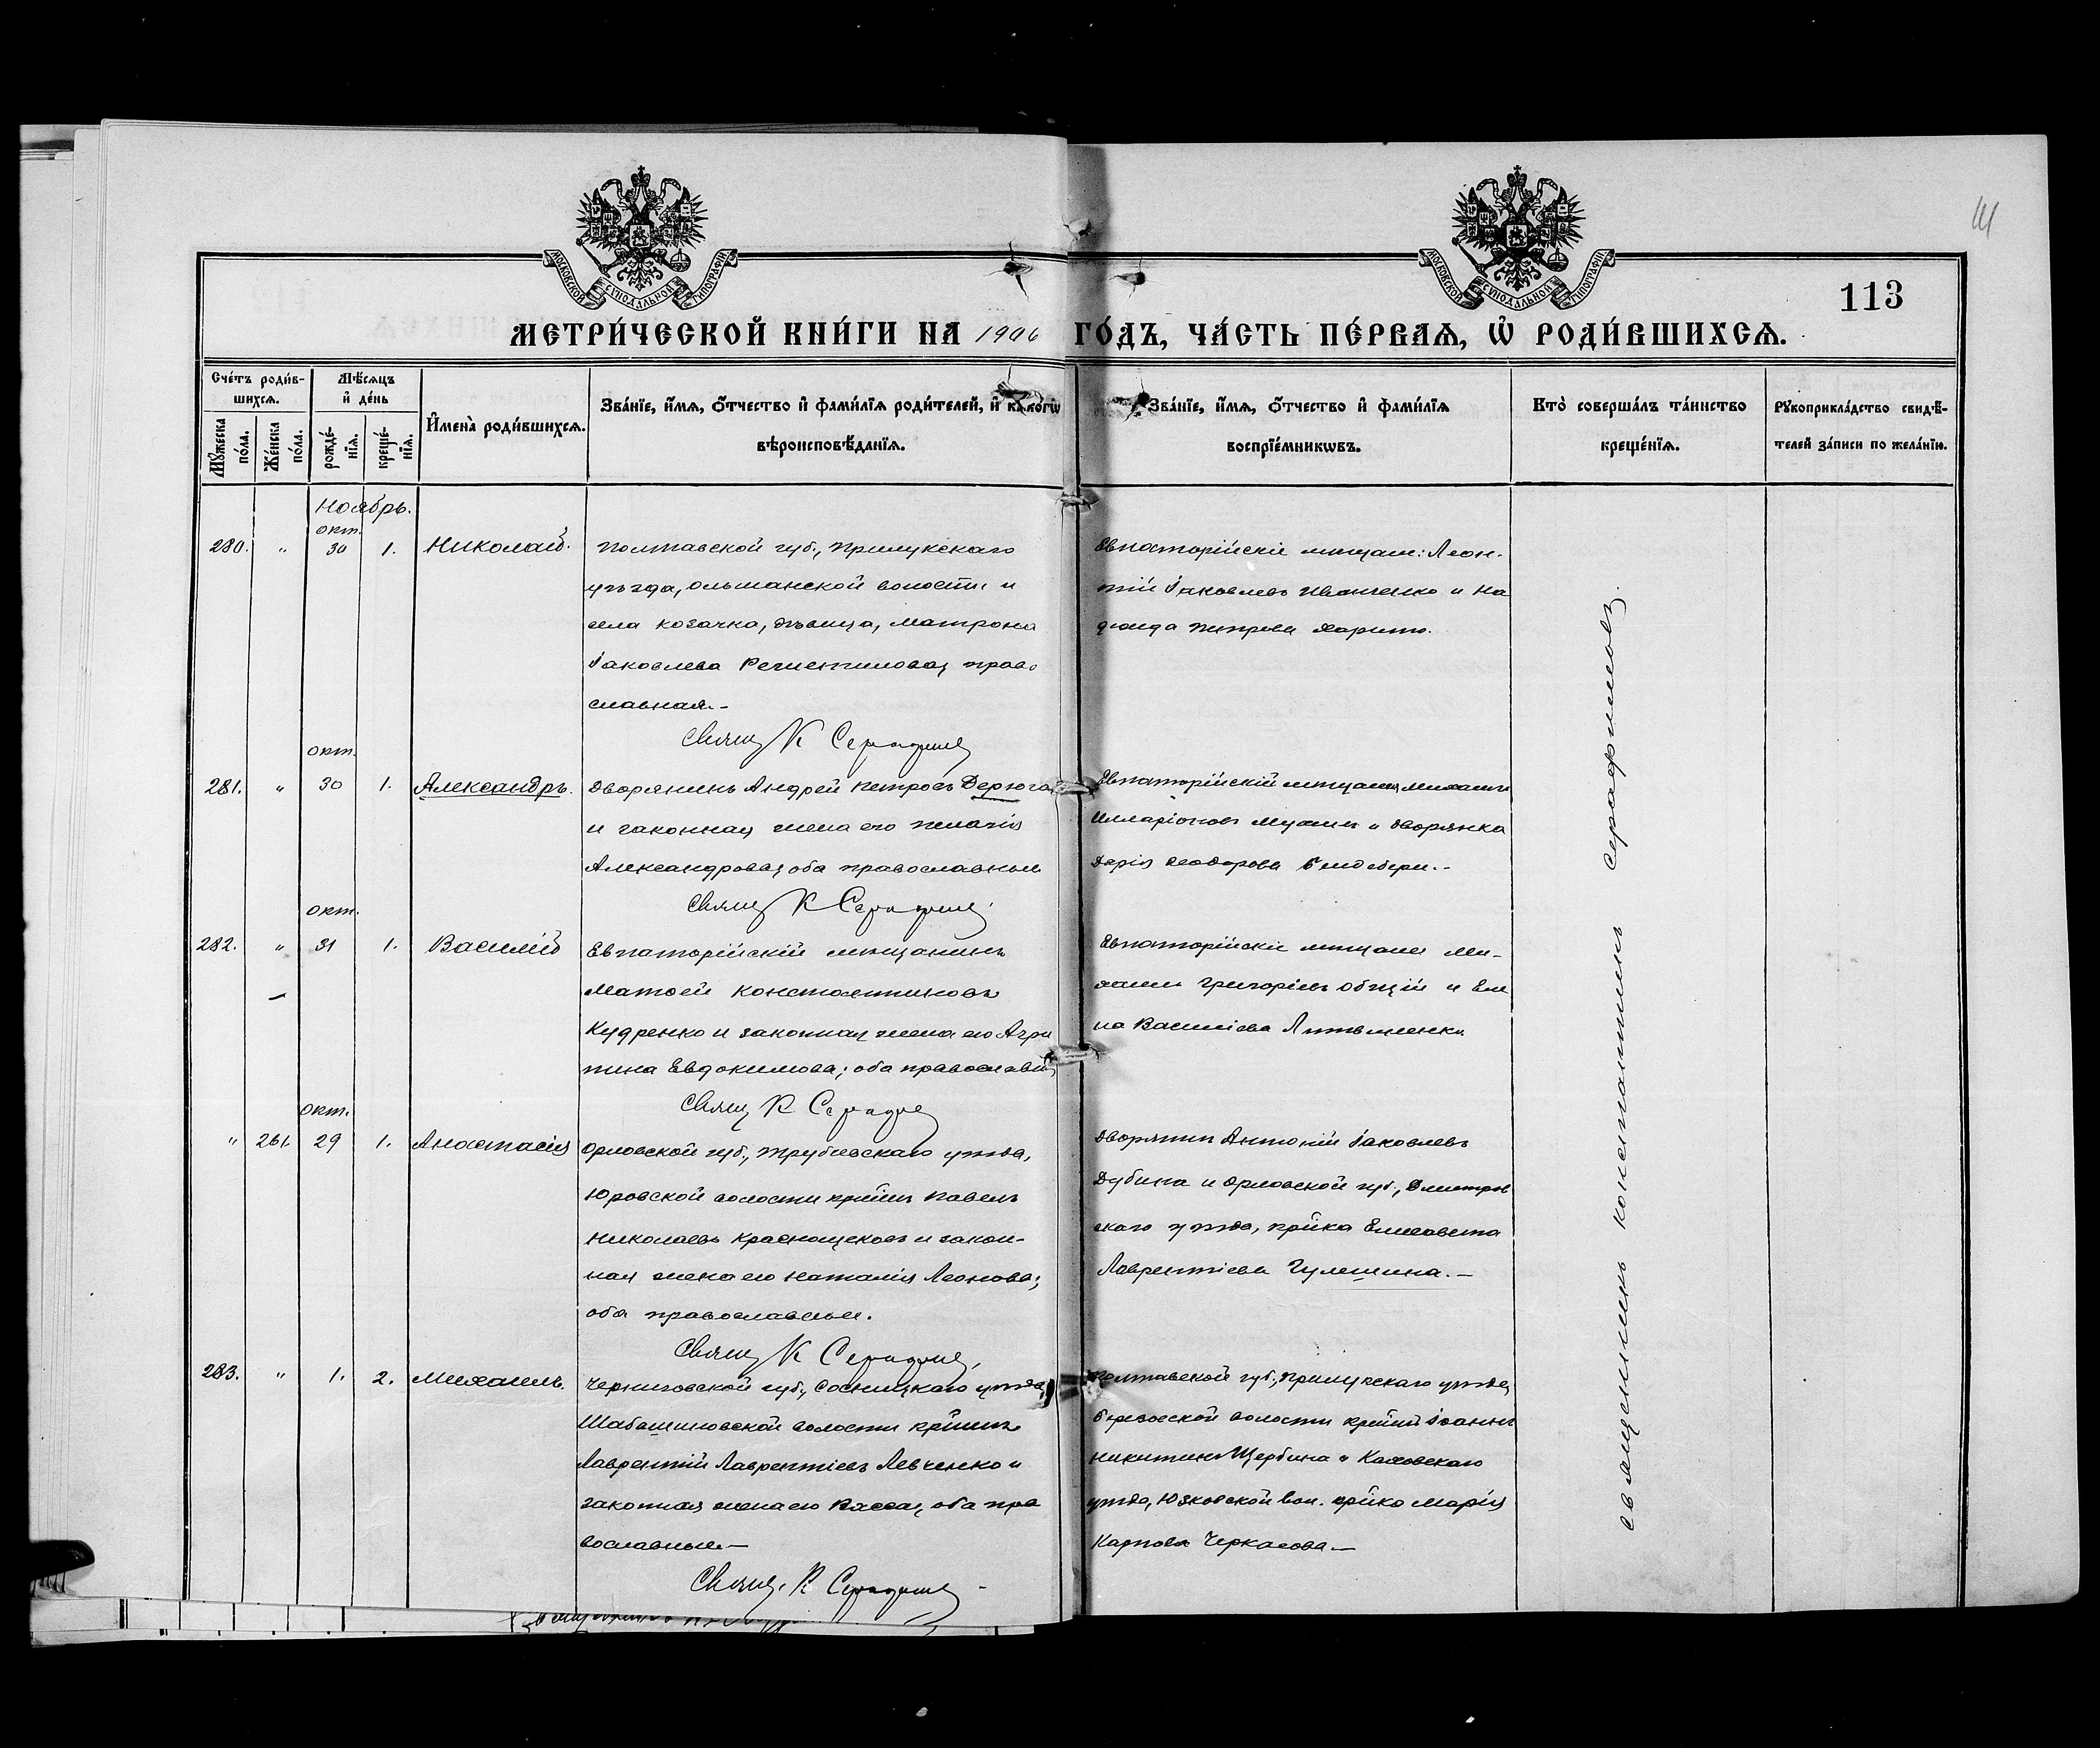 МОСКОВСКОЙ СѴНОДАЛЬНОЙ ТИПОГРАФІИ
МОСКОВСКОЙ СѴНОДАЛЬНОЙ ТИПОГРАФІИ
113
МЕТРИ́ЧЕСКОЙ КНИ́ГИ НА 1906 ГО́ДЪ, ЧА́СТЬ ПЕ́РВАѦ, Ѡ҆ РОДИ́ВШИХСѦ.
Сче́тъ роди́в-
шихсѧ.
Мꙋ́жеска по́ла.
Же́нска по́ла.
Мѣ́сѧцъ
и҆ де́нь
рожде́-
нїѧ.
креще́-
нїѧ.
И҆мена̀ роди́вшихсѧ.
Зва́нїе, и҆́мѧ, ѻ҆́тчество и҆ фами́лїѧ роди́телей, и҆ како́гѡ
вѣроисповѣ́данїѧ.
Зва́нїе, и҆́мѧ, ѻ҆́тчество и҆ фами́лїѧ
воспрїе́мникѡвъ.
Кто̀ соверша́лъ та́инство
креще́нїѧ.
Рꙋкоприкла́дство свидѣ́-
телей за́писи по жела́нїю.
Ноябрь.
окт.
280. " 30 1. Николай.
Полтавской губ., Прилукскаго
уѣзда, Ольшанской волости и
села козачка, дѣвица, Матрона
Іаковлева православная.-
Свящ К Серафим
Евпаторійскіе мѣщане: Леон-
тій Іаковлевъ Иванченко и На
дежда Петрова
окт.
281. " 30 1. Александръ.
Дворянинъ Андрей Петровъ Дерюга
и законная жена его Пелагія
Александрова, оба православные
Свящ К Серафим
Евпаторійскій мѣщанинъ Михаилъ
Илларіоновъ и дворянка
Дарія Ѳеодорова
окт.
282. " 31 1. Василій
Евпаторійскій мѣщанинъ
Матѳей Константиновъ
Кудренко и законная жена его Агри
пина Евдокимова; оба православн
Свящ К Серафим
Евпаторійскіе мѣщане Ми-
хаилъ Григоріевъ Общій и Еле
на Василіева Литвиненко
окт.
" 261. 29 1. Анастасія
Орловской губ., Трубчевскаго уѣзда,
Юровской волости кр̃нинъ Павелъ
Николаевъ Краснощековъ и закон-
ная жена его Наталія Леонова;
оба православные.
Свящ К Серафим
Дворянинъ Антоній Іаковлевъ
Дубина и Орловской губ., Дмитров
скаго уѣзда, кр̃нка Елисавета
Лаврентіева Гулешина.-
283. " 1. 2. Михаилъ.
Черниговской губ., Сосницкаго уѣзда,
Шабалиновской волости кр̃нинъ
Лаврентій Лаврентіевъ Левченко и
законная жена его Васса, оба пра
вославные-
Свящ. К Серафим
Полтавской губ., Прилукскаго уѣзда,
Березовской волости кр̃нинъ Іоаннъ
Никитинъ Щербина и
уѣзда, Юзковской вол. кр̃нка Марія
Карпова Черкасова.-
священникъ Константинъ Серафимовъ.